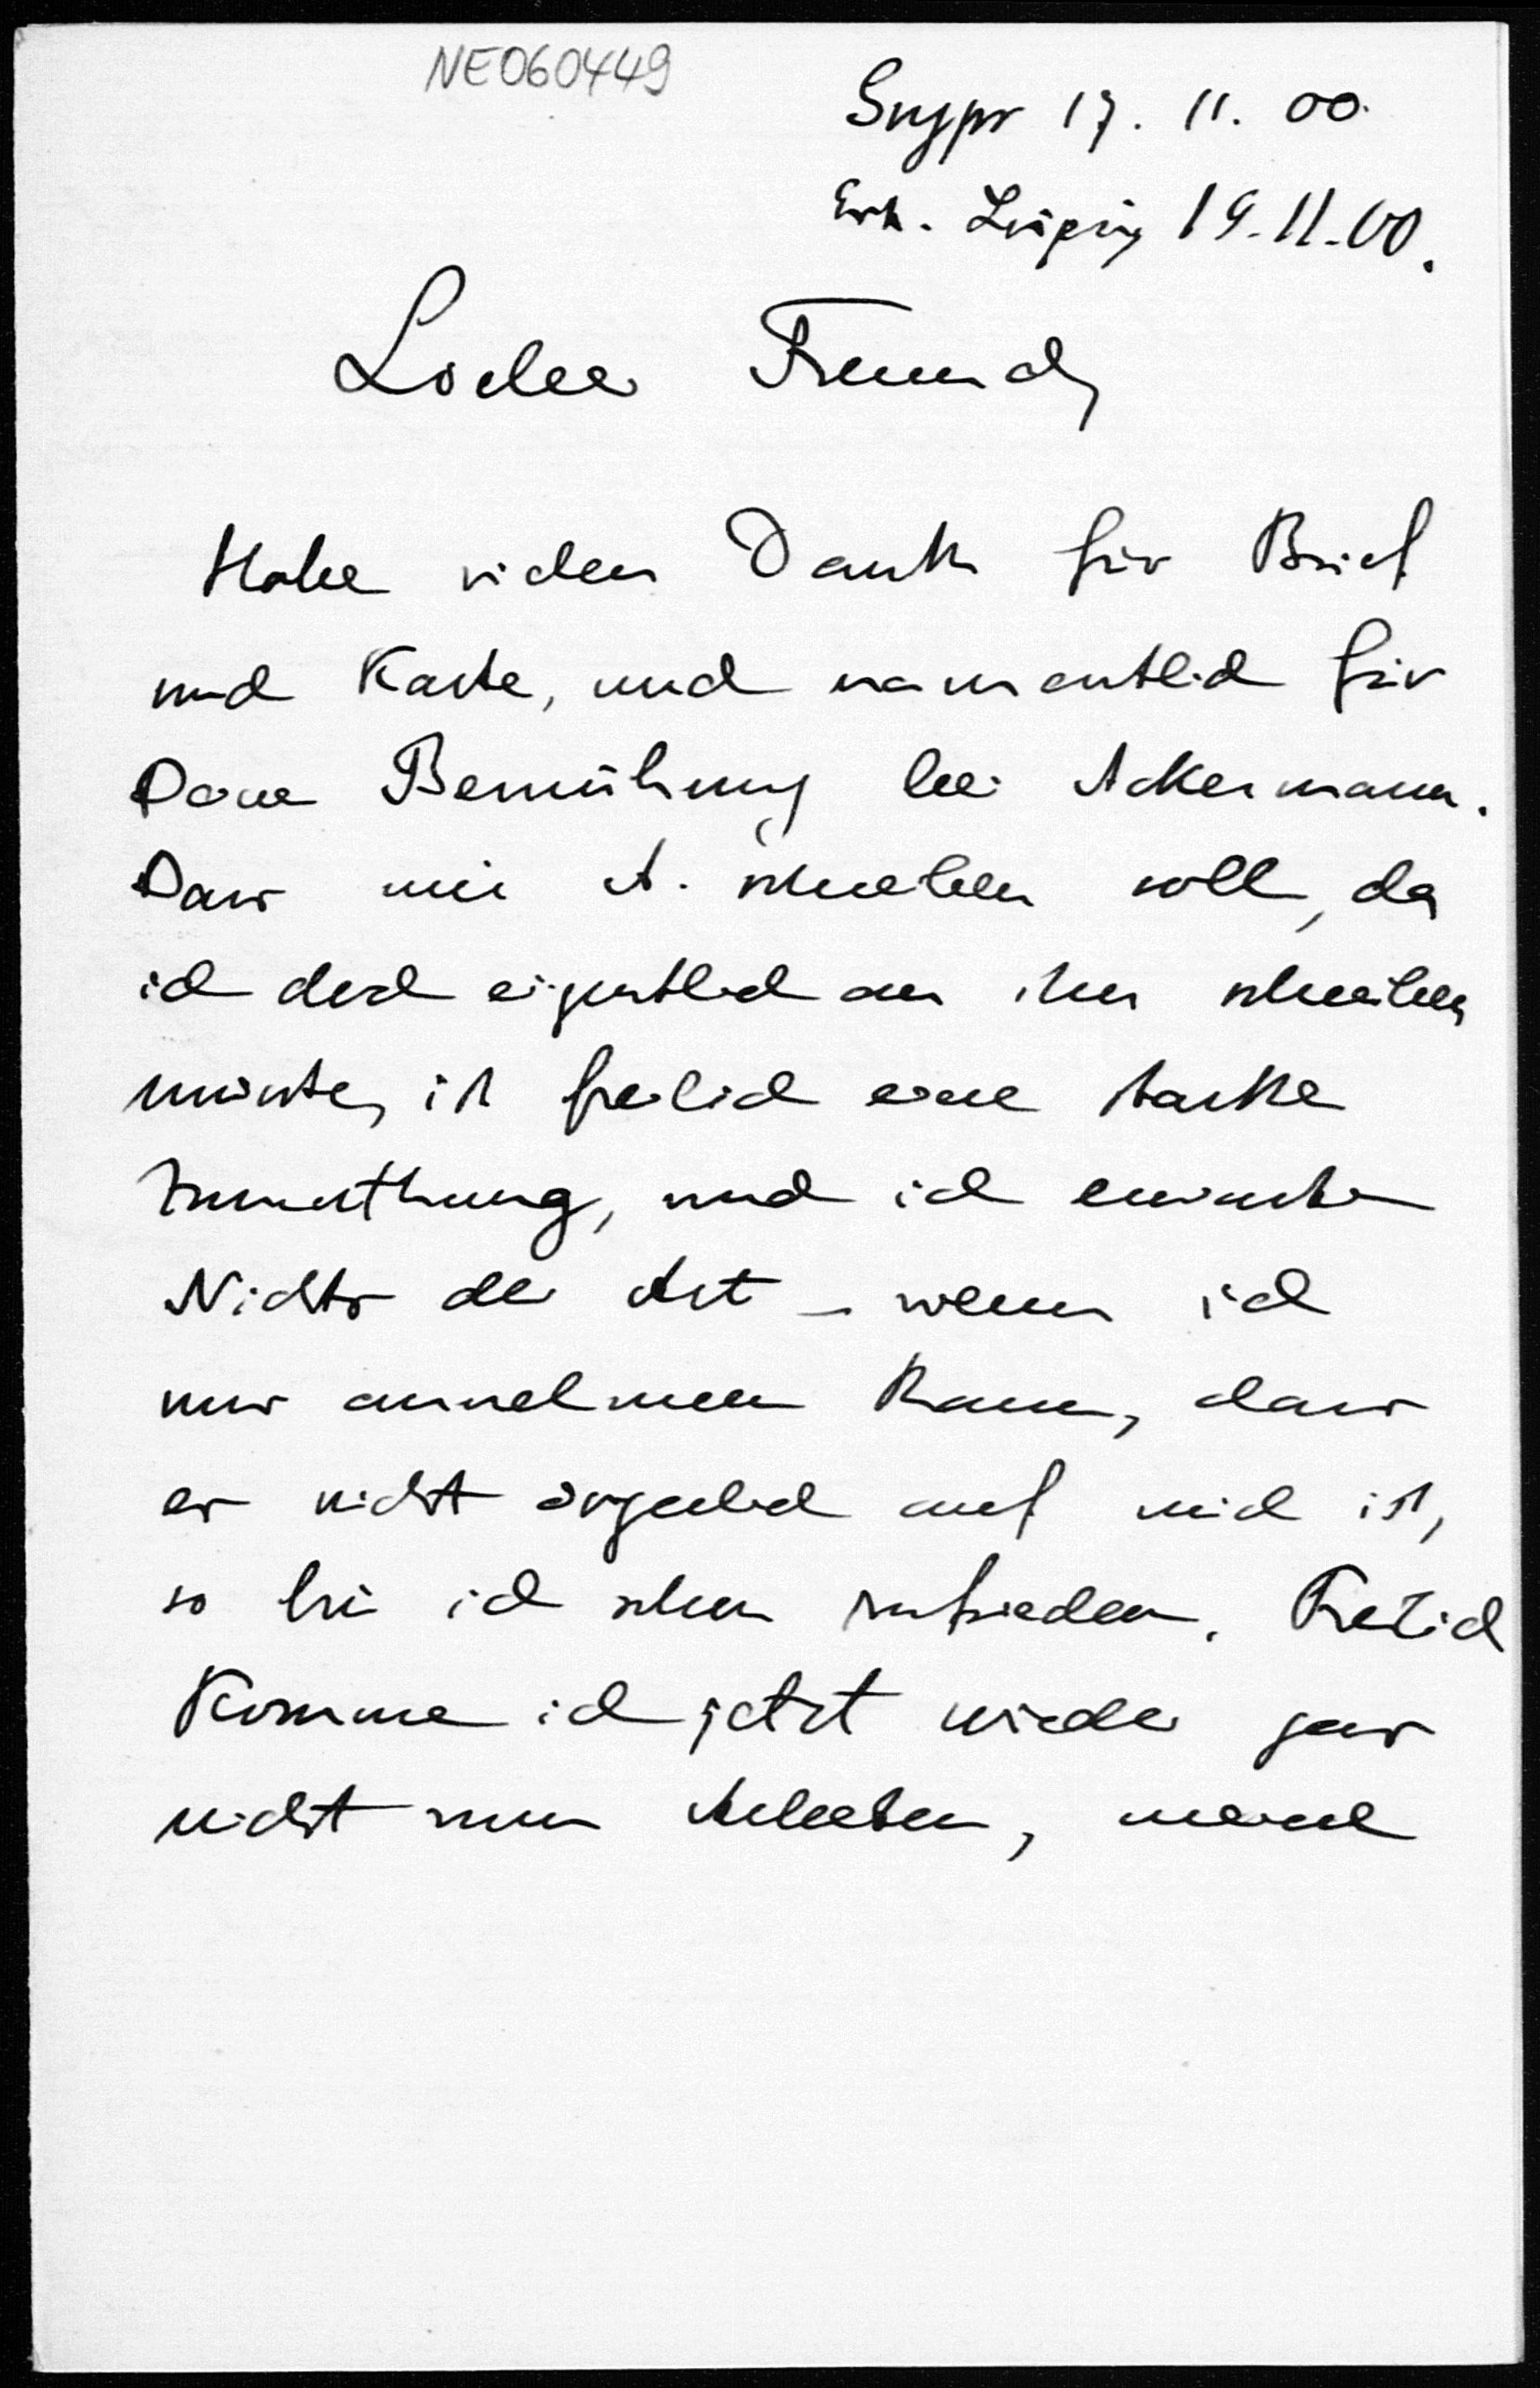 NE060449
17. 11. 00.
Erh. Leipzig 19.11.00.
Lieber Freund,
Habe vielen Dank für Brief
und Karte, und namentlich für
Deine Bemühung bei Ackermann.
Dass mir A. schreiben soll, da
ich doch eigentlich an ihn schreiben
müsste, ist freilich eine starke
Zumuthung, und ich erwarte
Nichts der Art – wenn ich
nur annehmen kann, dass
er nicht ärgerlich auf mich ist,
so bin ich schon zufrieden. Freilich
komme ich jetzt wieder gar
nicht zum Arbeiten, meine